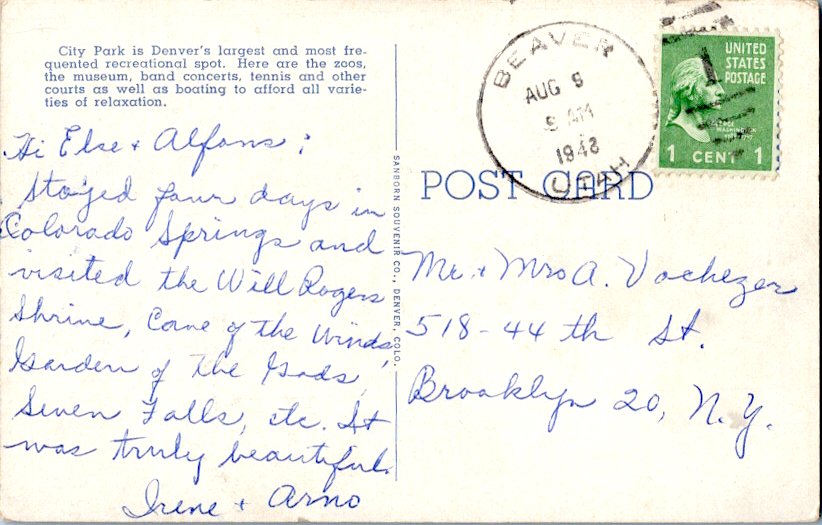 City Park is Denver's largest and most fre-
quented recreational spot. Here are the zoos,
the museum, band concerts, tennis and other
courts as well as boating to afford all varie-
ties of relaxation.
Hi Else + Alfons :
Stayed four days in
Colorado Springs and
visited the Will Rogers
Shrine, Cave of the Winds,
Garden of the Gods,
Seven Falls, etc. It
was truly beautiful.
Irene + Arno
SANBORN SOUVENIR CO., DENVER, COLO.
BEAVER
AUG 9
9 AM
1948
UTAH
UNITED
STATES
POSTAGE
WASHINGTON
1 CENT 1
POST CARD
Mr. + Mrs A. Vochezer
518-44 th St.
Brooklyn 20, N.Y.